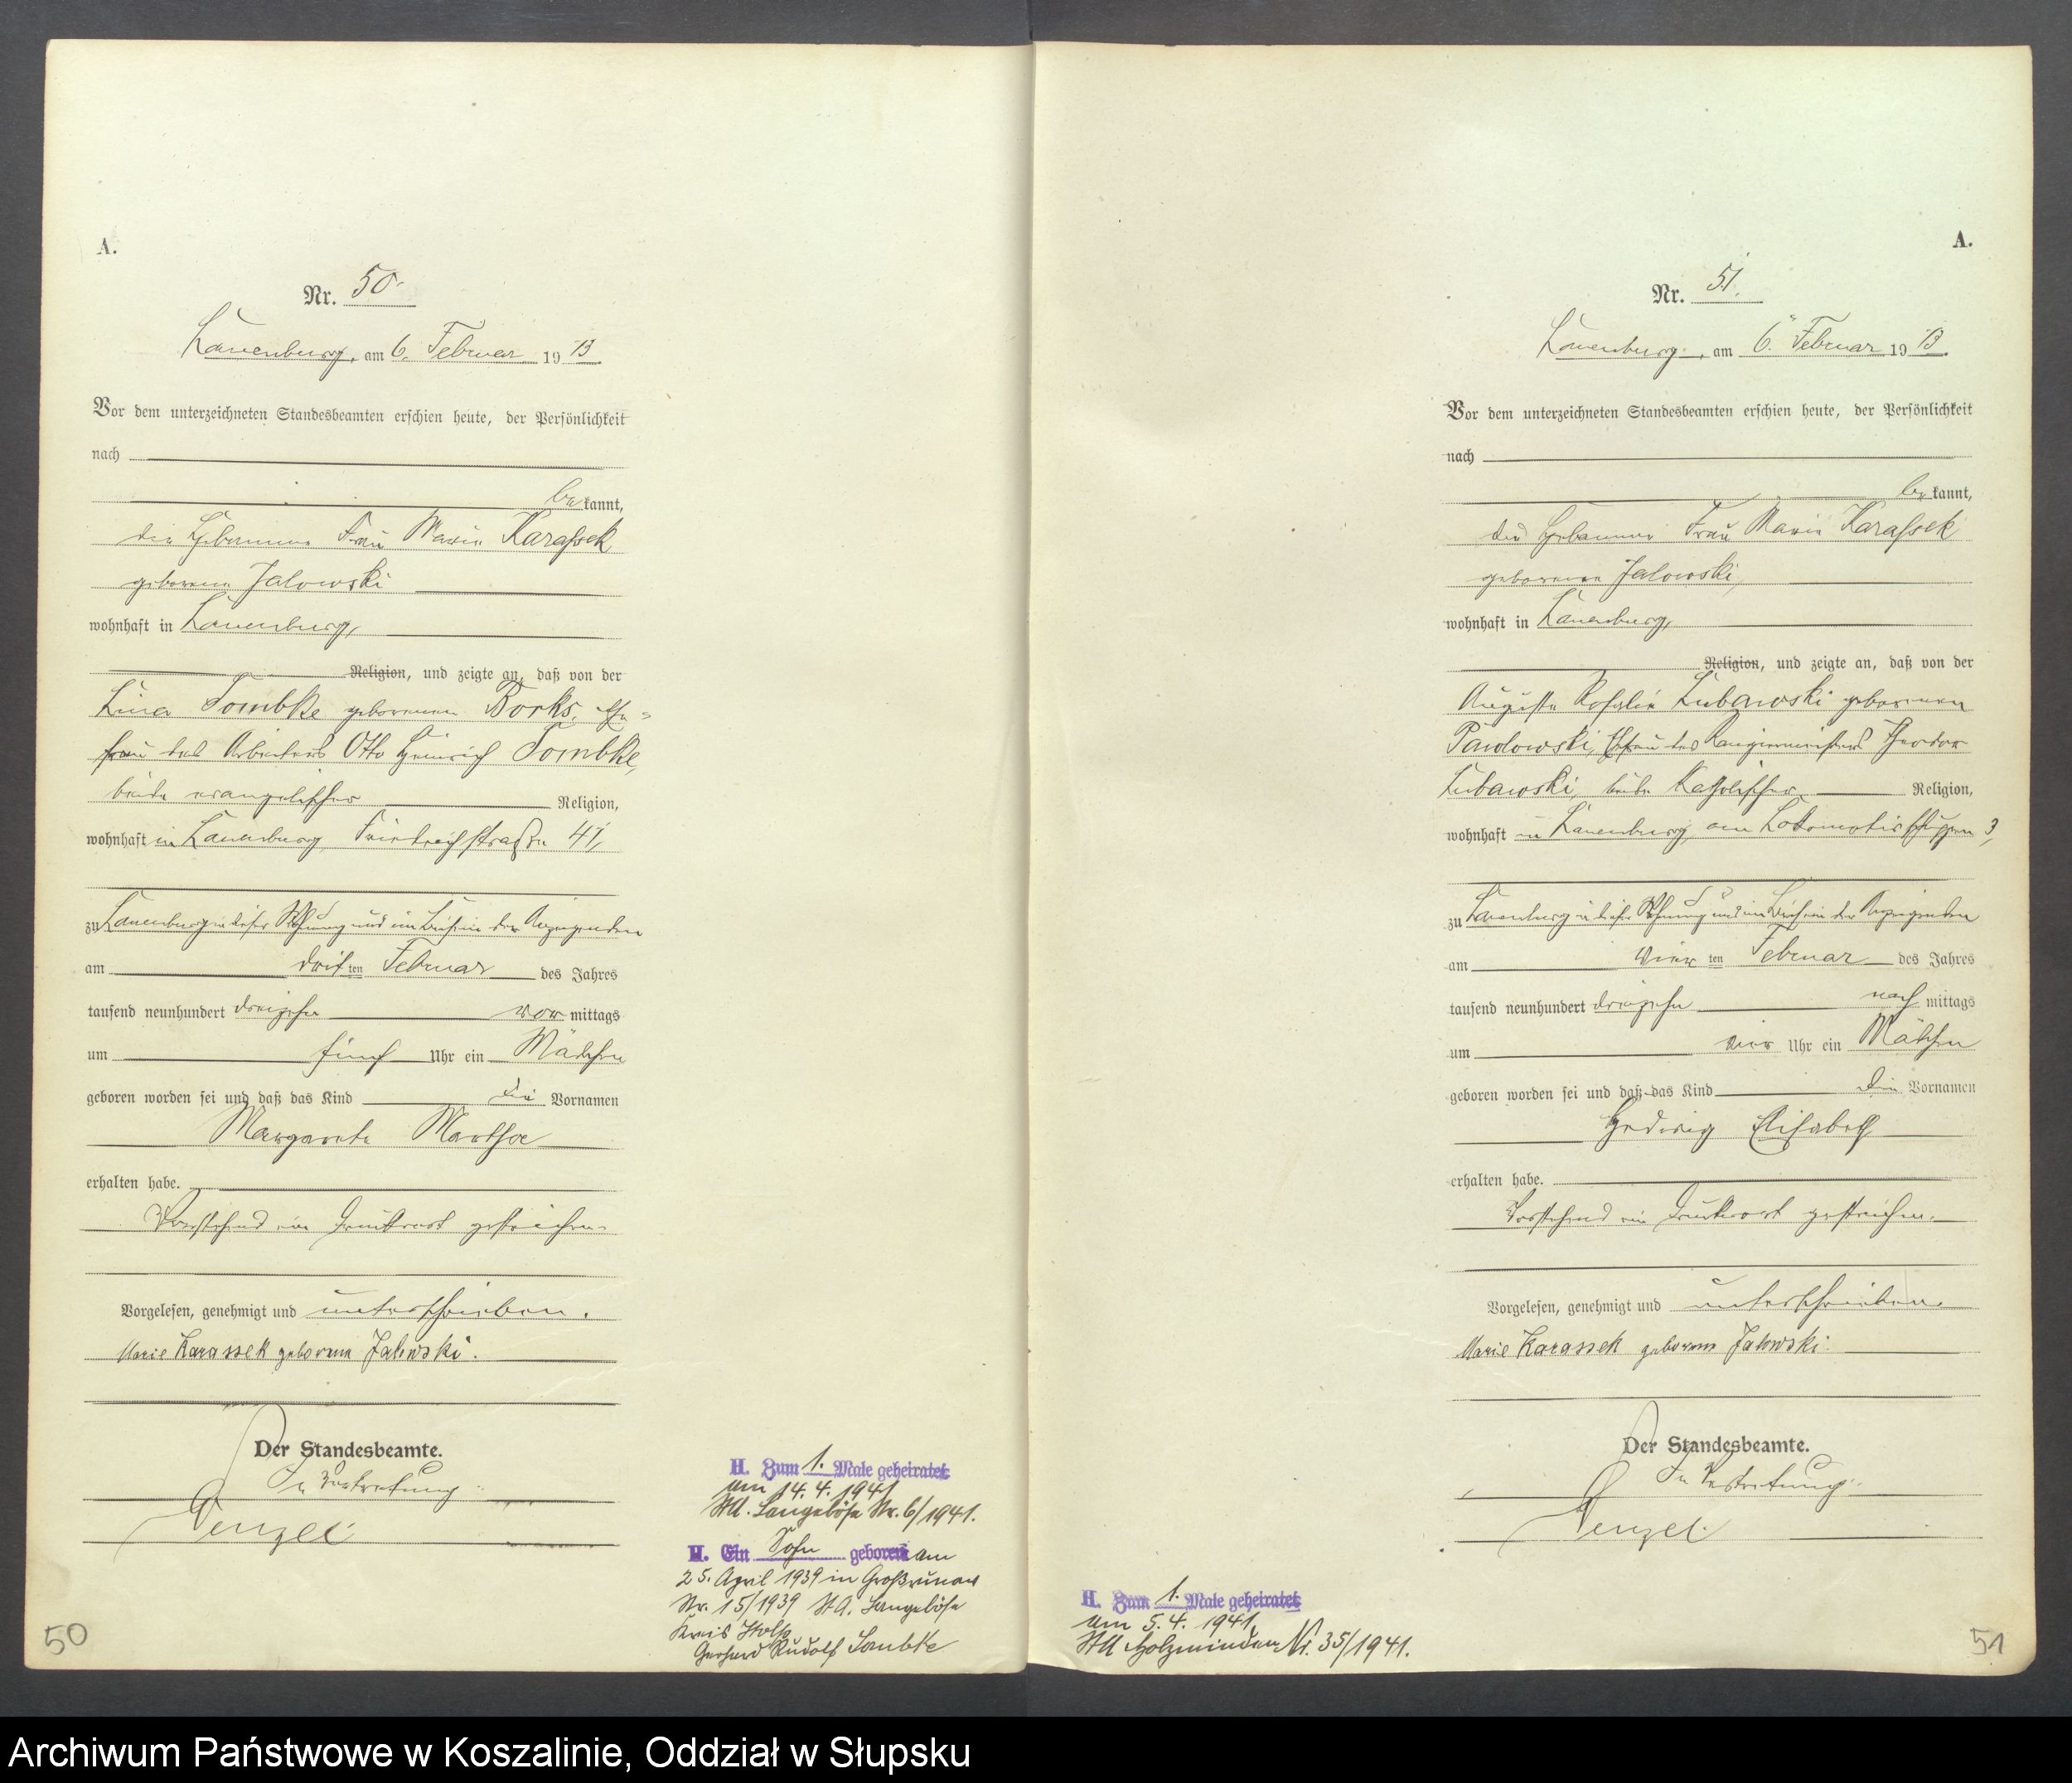 A.
Nr. 50.
Lauenburg, am 6. Februar 19 13.
Vor dem unterzeichneten Standesbeamten erschien heute, der Persönlichkeit
nach
be kannt,
die Hebamme Frau Marie Karassek
geborene Jalowski
wohnhaft in Lauenburg,
Religion, und zeigte an, daß von der
Tombke geborenen Borks, Ehe=
frau des Arbeiters Otto Heinrich Tombke,
beide evangelischer Religion,
wohnhaft in Lauenburg Friedrichstraße 41,
zu Lauenburg in dieser Wohnung und im Beisein der Anzeigenden
am dritten Februar des Jahres
tausend neunhundert dreizehn vor mittags
um fünf Uhr ein Mädchen
geboren worden sei und daß das Kind die Vornamen
Margarete Martha
erhalten habe.
Vorstehend ein Druckwort gestrichen.
Vorgelesen, genehmigt und unterschrieben.
Marie Karassek geborene Jalowski.
Der Standesbeamte.
In Vertretung:
Wenzel
H. Zum 1. Male geheiratet
am 14.4.1941
StA. Langeböse Nr. 6/1941.
H. Ein Sohn geboren am
25. April 1939 in
Nr. 15/1939 StA. Langeböse
Kreis Stolp
Gerhard Rudolf Tombke
50
A.
Nr. 51.
Lauenburg, am 6. Februar 19 13.
Vor dem unterzeichneten Standesbeamten erschien heute, der Persönlichkeit
nach
be kannt,
die Hebamme Frau Marie Karassek
geborene Jalowski,
wohnhaft in Lauenburg,
Religion, und zeigte an, daß von der
Auguste Rosalie Lubawski geborenen
Pawlowski, Ehefrau des Rangiermeisters Theodor
Lubawski, beide katholischer Religion,
wohnhaft in Lauenburg, am Lokomotivschuppen 3,
zu Lauenburg in dieser Wohnung und im Beisein der Anzeigenden
am vier ten Februar des Jahres
tausend neunhundert dreizehn nach mittags
um vier Uhr ein Mädchen
geboren worden sei und daß das Kind die Vornamen
Hedwig Elisabeth
erhalten habe.
Vorstehend ein Druckwort gestrichen.
Vorgelesen, genehmigt und unterschrieben.
Marie Karassek geborene Jalowski.
Der Standesbeamte.
In Vertretung:
Wenzel
H. Zum 1. Male geheiratet
am 5.4.1941
StA Holzminden Nr. 35/1941.
51
Archiwum Państwowe w Koszalinie, Oddział w Słupsku